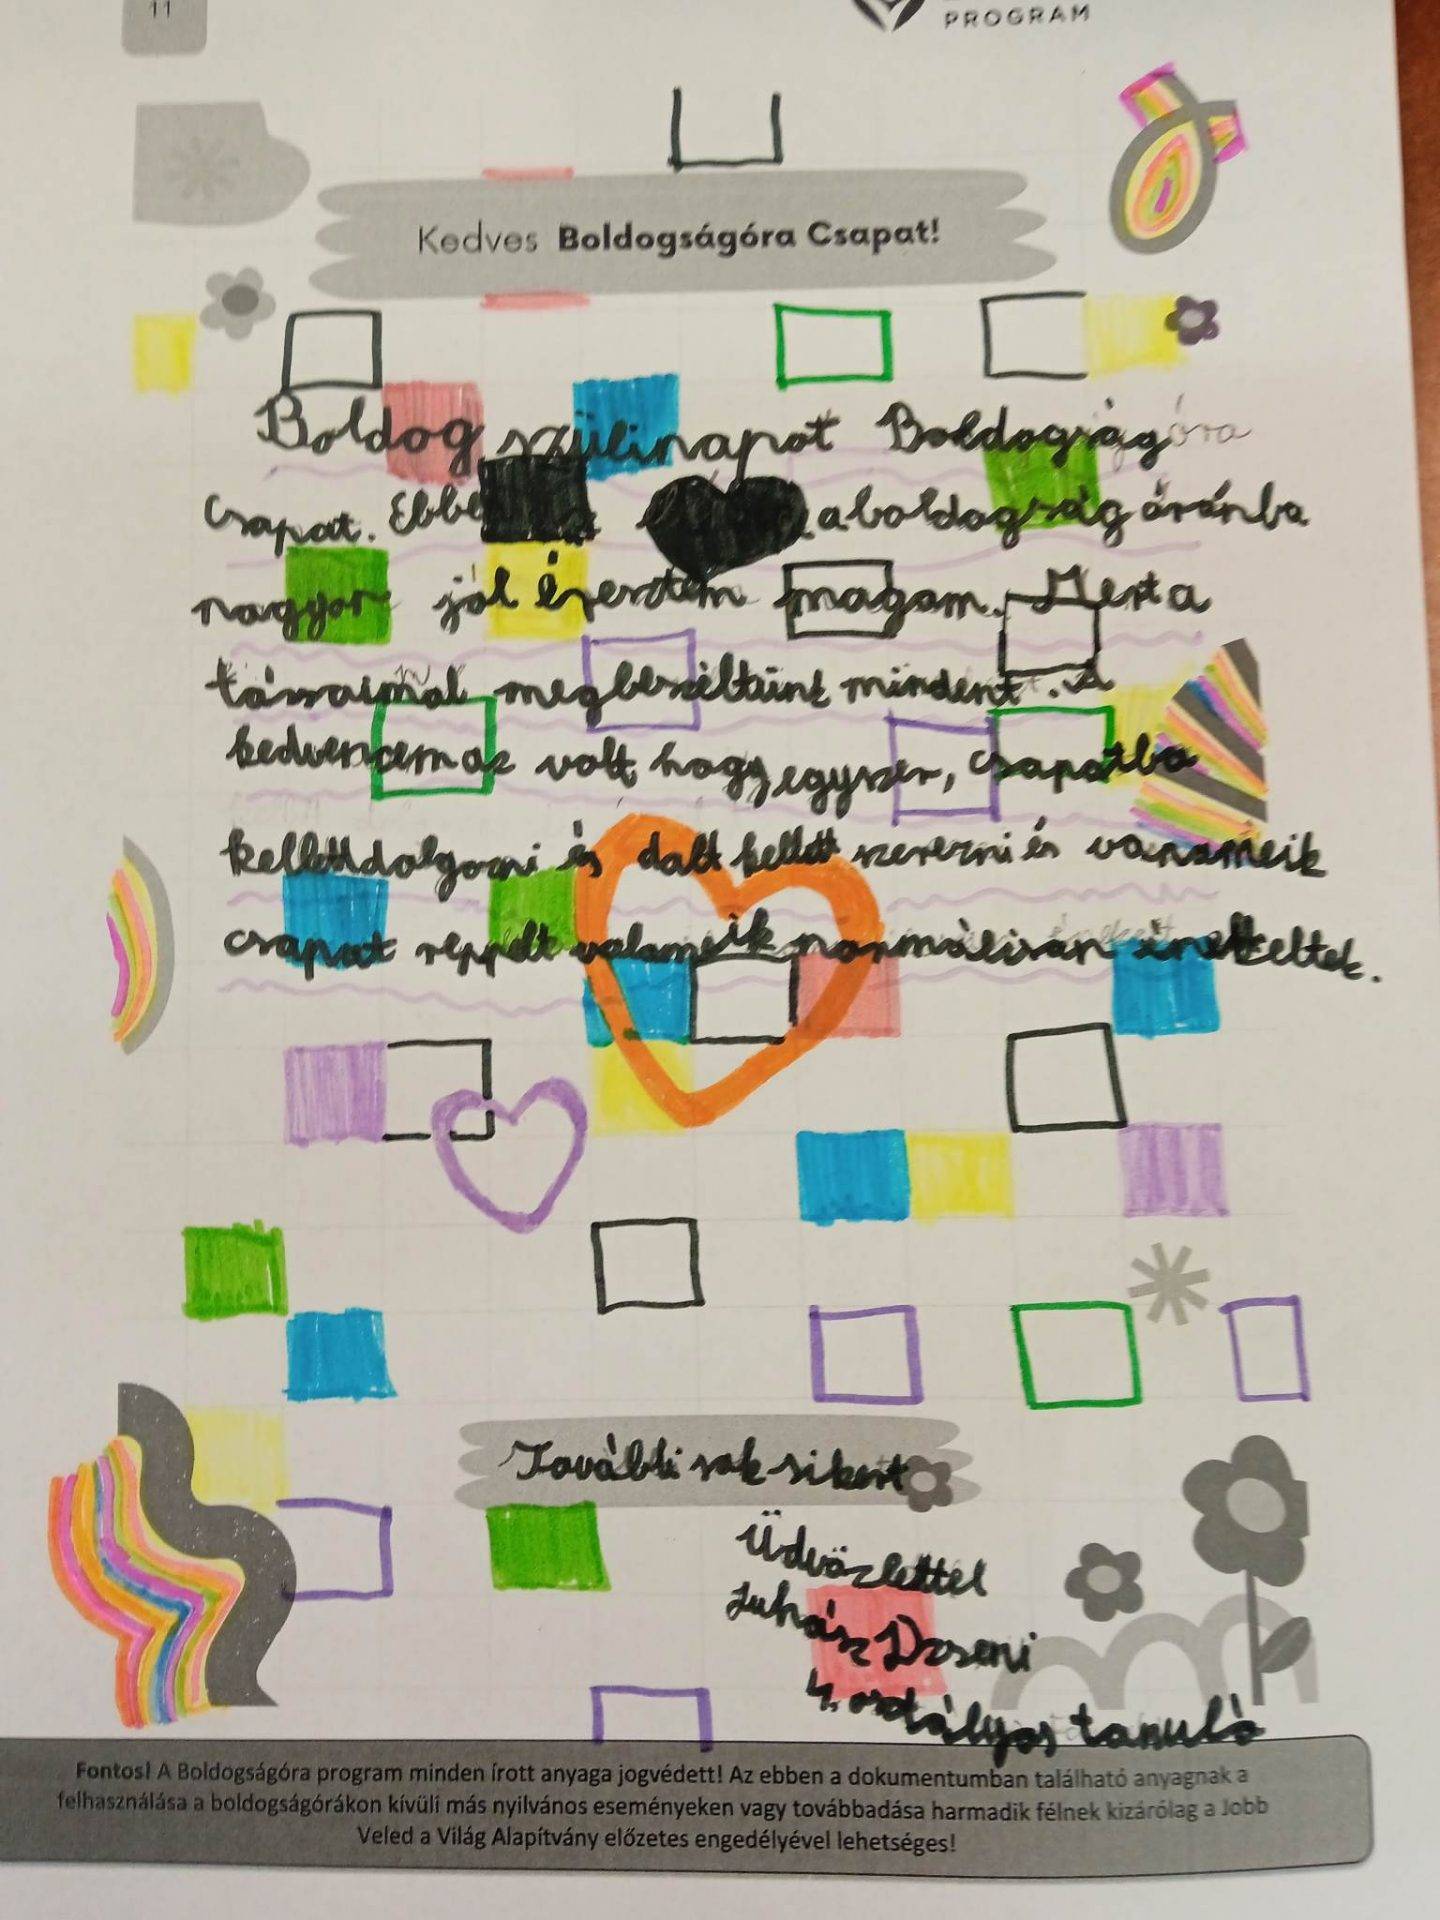 11
PROGRAM
Kedves Boldogságóra Csapat!
Boldog szülinapot Boldogságóra
csapat. Ebbe a boldogság óránba
nagyon jól éreztem magam. Mert a
társaimal megbeszéltünk mindent. A
kedvencem az volt hogy egyszer, csapatba
kellett dolgozni és dalt kellett szerezni és
csapat reppelt valameik normálisan énekeltek.
További sok sikert
Üdvözlettel
Juhász Dzseni
4. osztályos tanuló
Fontos! A Boldogságóra program minden írott anyaga jogvédett! Az ebben a dokumentumban található anyagnak a
felhasználása a boldogságórákon kívüli más nyilvános eseményeken vagy továbbadása harmadik félnek kizárólag a Jobb
Veled a Világ Alapítvány előzetes engedélyével lehetséges!